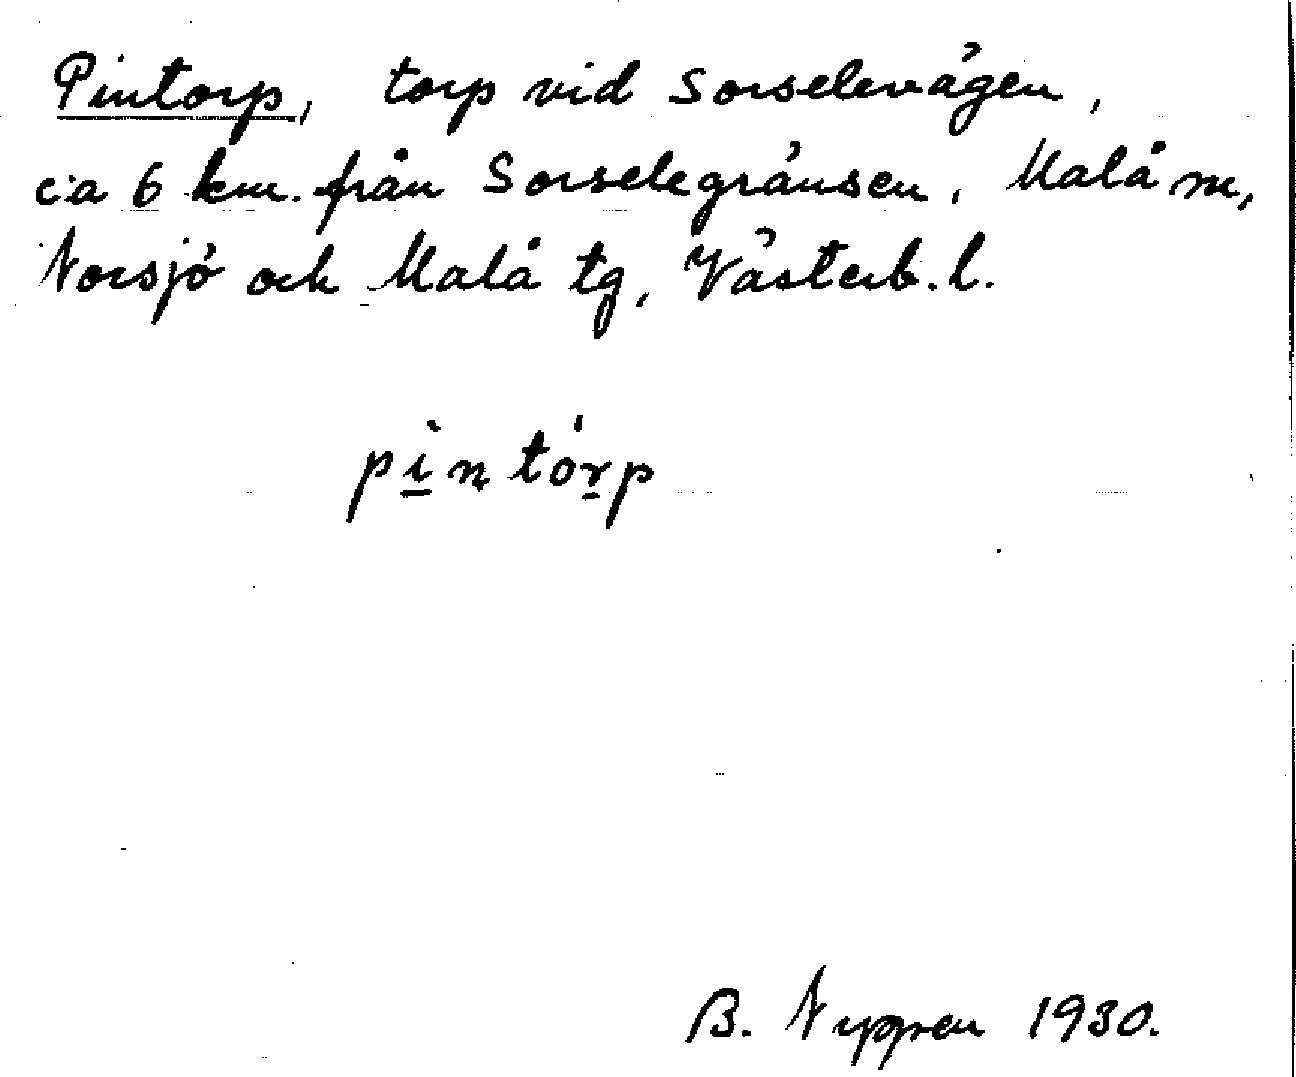 Pintorp, torp vid Sorselevägen,
c:a 6 km. från Sorselegränsen, Malå sn,
Norsjö och Malå tg, Västerb. l.
pìntórp
B. Nygren 1930.